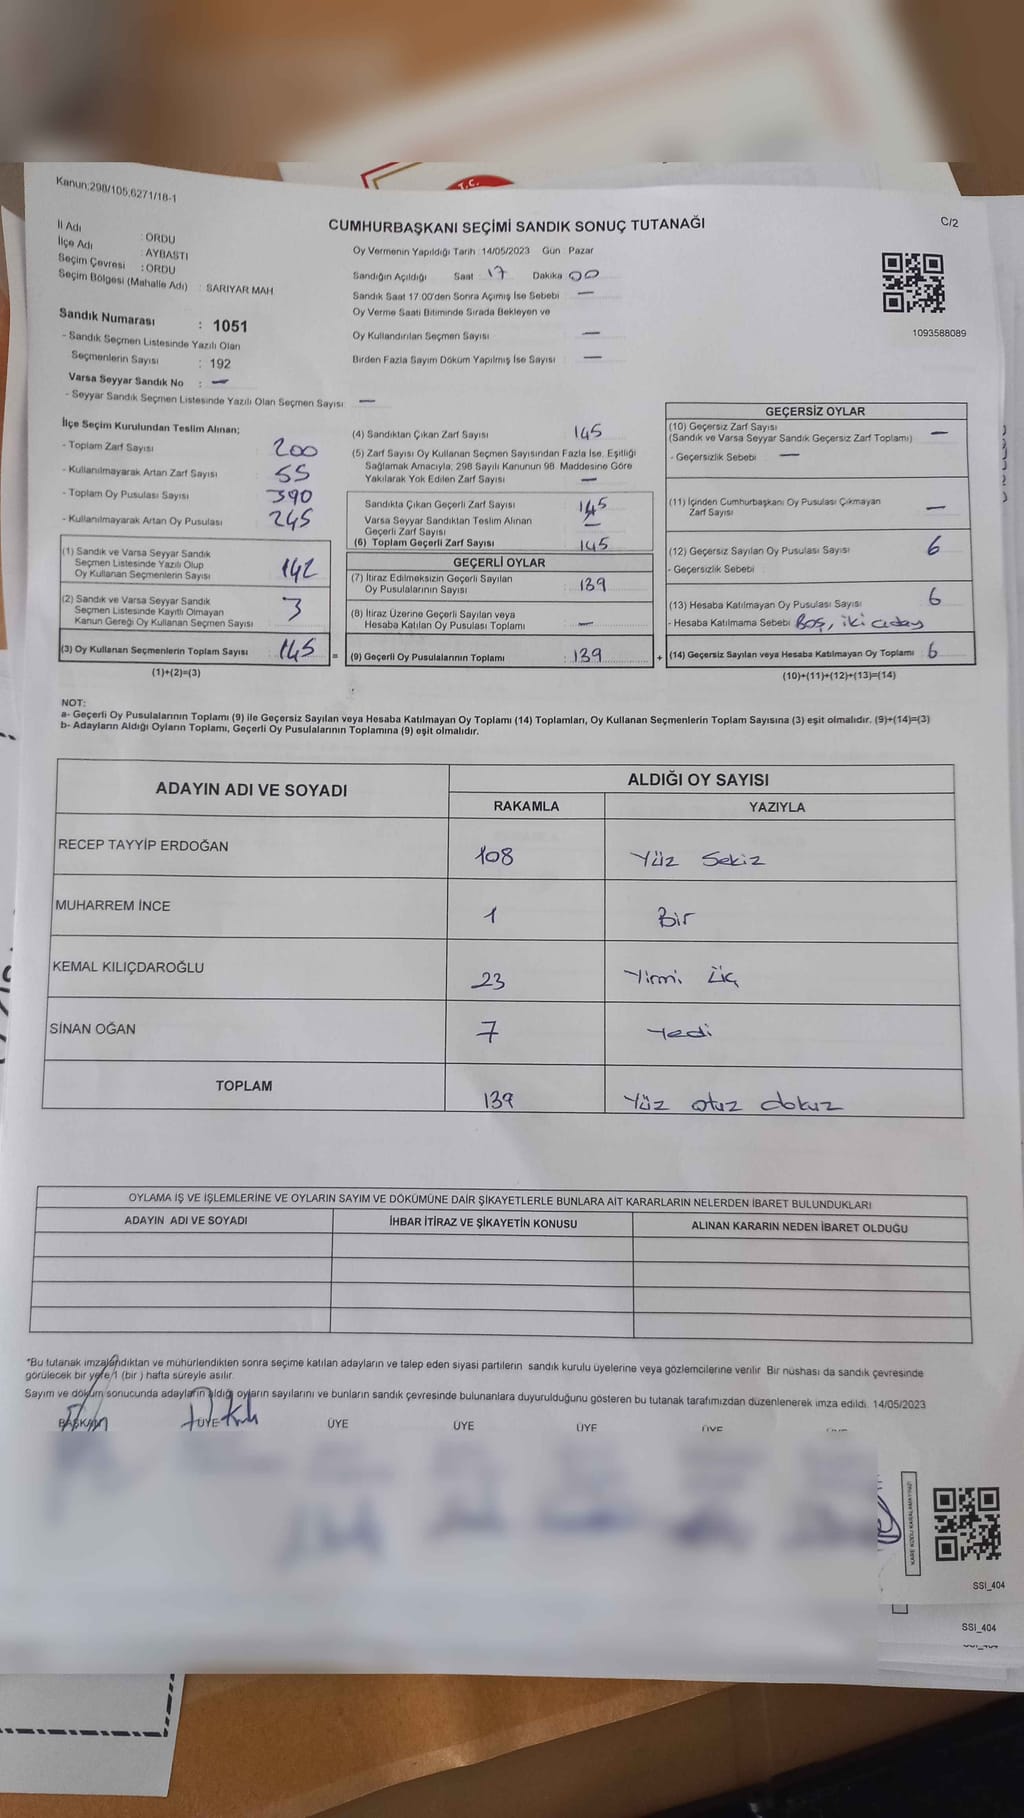 T.C.
Kanun:298/105,6271/18-1
CUMHURBAŞKANI SEÇİMİ SANDIK SONUÇ TUTANAĞI
C/2
İl Adı : ORDU
İlçe Adı : AYBASTI
Seçim Çevresi : ORDU
Seçim Bölgesi (Mahalle Adı) : SARIYAR MAH
Sandık Numarası : 1051
- Sandık Seçmen Listesinde Yazılı Olan
Seçmenlerin Sayısı : 192
Varsa Seyyar Sandık No : —
- Seyyar Sandık Seçmen Listesinde Yazılı Olan Seçmen Sayısı: —
Oy Vermenin Yapıldığı Tarih :14/05/2023 Gün : Pazar
Sandığın Açıldığı Saat : 17 Dakika : 00
Sandık Saat 17:00'den Sonra Açımış İse Sebebi : —
Oy Verme Saati Bitiminde Sırada Bekleyen ve
Oy Kullandırılan Seçmen Sayısı : —
Birden Fazla Sayım Döküm Yapılmış İse Sayısı : —
1093588089
İlçe Seçim Kurulundan Teslim Alınan;
- Toplam Zarf Sayısı : 200
- Kullanılmayarak Artan Zarf Sayısı : 55
- Toplam Oy Pusulası Sayısı : 390
- Kullanılmayarak Artan Oy Pusulası : 245
(1) Sandık ve Varsa Seyyar Sandık
Seçmen Listesinde Yazılı Olup
Oy Kullanan Seçmenlerin Sayısı : 142
(2) Sandık ve Varsa Seyyar Sandık
Seçmen Listesinde Kayıtlı Olmayan
Kanun Gereği Oy Kullanan Seçmen Sayısı : 3
(3) Oy Kullanan Seçmenlerin Toplam Sayısı : 145 =
(1)+(2)=(3)
(4) Sandıktan Çıkan Zarf Sayısı : 145
(5) Zarf Sayısı Oy Kullanan Seçmen Sayısından Fazla İse, Eşitliği
Sağlamak Amacıyla, 298 Sayılı Kanunun 98. Maddesine Göre
Yakılarak Yok Edilen Zarf Sayısı : —
Sandıkta Çıkan Geçerli Zarf Sayısı : 145
Varsa Seyyar Sandıktan Teslim Alınan
Geçerli Zarf Sayısı : —
(6) Toplam Geçerli Zarf Sayısı : 145
GEÇERLİ OYLAR
(7) İtiraz Edilmeksizin Geçerli Sayılan
Oy Pusulalarının Sayısı : 139
(8) İtiraz Üzerine Geçerli Sayılan veya
Hesaba Katılan Oy Pusulası Toplamı : —
(9) Geçerli Oy Pusulalarının Toplamı : 139 +
GEÇERSİZ OYLAR
(10) Geçersiz Zarf Sayısı
(Sandık ve Varsa Seyyar Sandık Geçersiz Zarf Toplamı) : —
- Geçersizlik Sebebi : —
(11) İçinden Cumhurbaşkanı Oy Pusulası Çıkmayan
Zarf Sayısı : —
(12) Geçersiz Sayılan Oy Pusulası Sayısı : 6
- Geçersizlik Sebebi :
(13) Hesaba Katılmayan Oy Pusulası Sayısı : 6
- Hesaba Katılmama Sebebi : Boş, iki aday
(14) Geçersiz Sayılan veya Hesaba Katılmayan Oy Toplamı : 6
(10)+(11)+(12)+(13)=(14)
NOT:
a- Geçerli Oy Pusulalarının Toplamı (9) ile Geçersiz Sayılan veya Hesaba Katılmayan Oy Toplamı (14) Toplamları, Oy Kullanan Seçmenlerin Toplam Sayısına (3) eşit olmalıdır. (9)+(14)=(3)
b- Adayların Aldığı Oyların Toplamı, Geçerli Oy Pusulalarının Toplamına (9) eşit olmalıdır.
ADAYIN ADI VE SOYADI ALDIĞI OY SAYISI
RAKAMLA YAZIYLA
RECEP TAYYİP ERDOĞAN 108 Yüz Sekiz
MUHARREM İNCE 1 Bir
KEMAL KILIÇDAROĞLU 23 Yirmi Üç
SİNAN OĞAN 7 Yedi
TOPLAM 139 Yüz otuz dokuz
OYLAMA İŞ VE İŞLEMLERİNE VE OYLARIN SAYIM VE DÖKÜMÜNE DAİR ŞİKAYETLERLE BUNLARA AİT KARARLARIN NELERDEN İBARET BULUNDUKLARI
ADAYIN ADI VE SOYADI İHBAR İTİRAZ VE ŞİKAYETİN KONUSU ALINAN KARARIN NEDEN İBARET OLDUĞU
*Bu tutanak imzalandıktan ve mühürlendikten sonra seçime katılan adayların ve talep eden siyasi partilerin sandık kurulu üyelerine veya gözlemcilerine verilir. Bir nüshası da sandık çevresinde
görülecek bir yere 1 (bir ) hafta süreyle asılır.
Sayım ve döküm sonucunda adayların aldığı oyların sayılarını ve bunların sandık çevresinde bulunanlara duyurulduğunu gösteren bu tutanak tarafımızdan düzenlenerek imza edildi. 14/05/2023
BAŞKAN ÜYE ÜYE ÜYE ÜYE ÜYE
KARE KODU KARALAMAYINIZ!
SSI_404
SSI_404